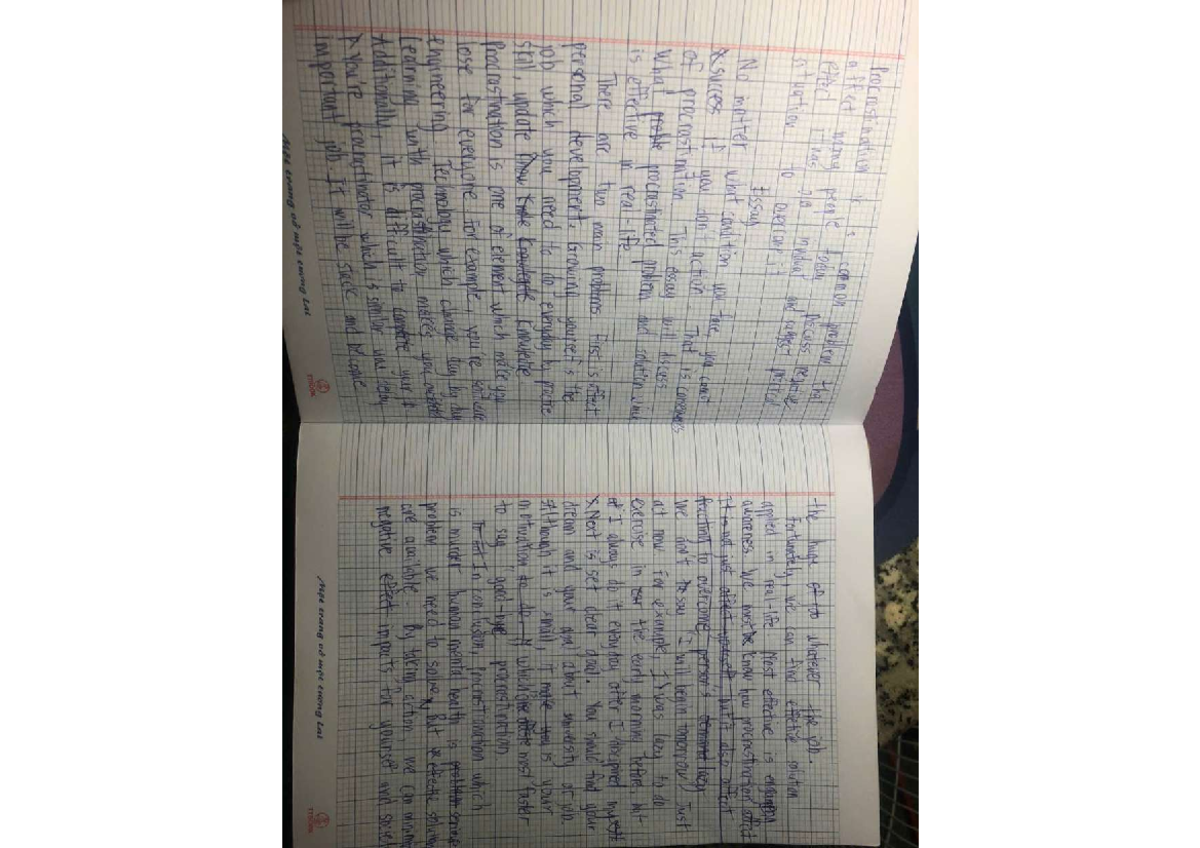 Procrastination is a common problem that
affect many people today. Discuss negative
effect this on individual and suggest practical
situation to overcome it
Essay
No matter what condition you face, you can't
success if you don't action. That is consequences
of procrastination. This essay will discuss
what procrastinated problem and solution which
is effective in real-life
There are two main problems. First is affect
personal development. Growing yourself is the
job which you need to do everyday by practice
skill, update knowledge
Procrastination is one of element which make you
lose for everyone. For example, you're software
engineering. Technology which change day by day
Learning with procrastination makes you
Additionally, it is difficult to complete your
You're procrastinator which is similar you delay
important job. It will be stuck and become
the huge whatever the job.
Fortunately, we can find effective solution
applied in real-life. Most effective is
awareness. We must know how procrastination affect
It is not just affect, but it also affect
We don't say "I will begin tomorrow" Just
act now. For example, I was lazy to do
exercise in the early morning before, but
I always do it everyday after I disciplined myself
Next is set clear goal. You should find your
dream and your goal about university or job.
Although it is small, it is your
motivation which most faster
to say "good-bye" procrastination.
In conclusion, procrastination which
is murder human mental health is serious
problem we need to solve, but effective solution
are available. By taking action we can minimize
negative impacts for yourself and society